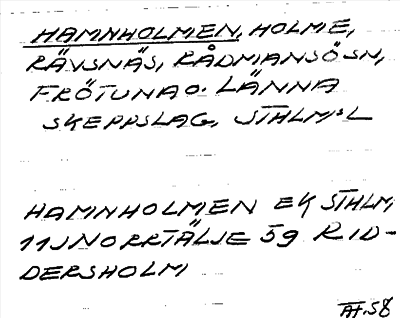 HAMNHOLMEN, HOLME,
RÄVSNÄS, RÅDMANSÖSN,
FRÖTUNA O. LÄNNA
SKEPPSLAG, STHLM:S L
HAMNHOLMEN EK STHLM
11J NORRTÄLJE 59 RID-
DERSHOLM